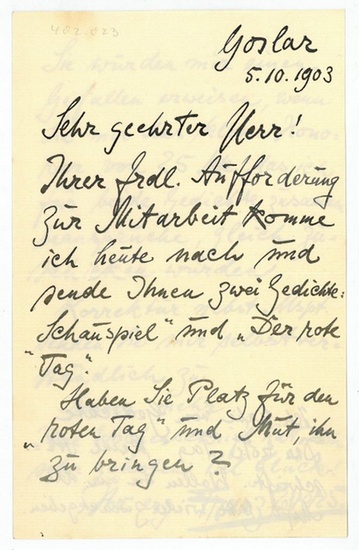 402.023
Goslar
5.10.1903
Sehr geehrter Herr!
Ihrer frdl. Aufforderung
zur Mitarbeit komme
ich heute nach und
sende Ihnen zwei Gedichte:
Schauspiel" und „Der rote
„Tag".
Haben Sie Platz für den
„roten Tag" und Mut, ihn
zu bringen?